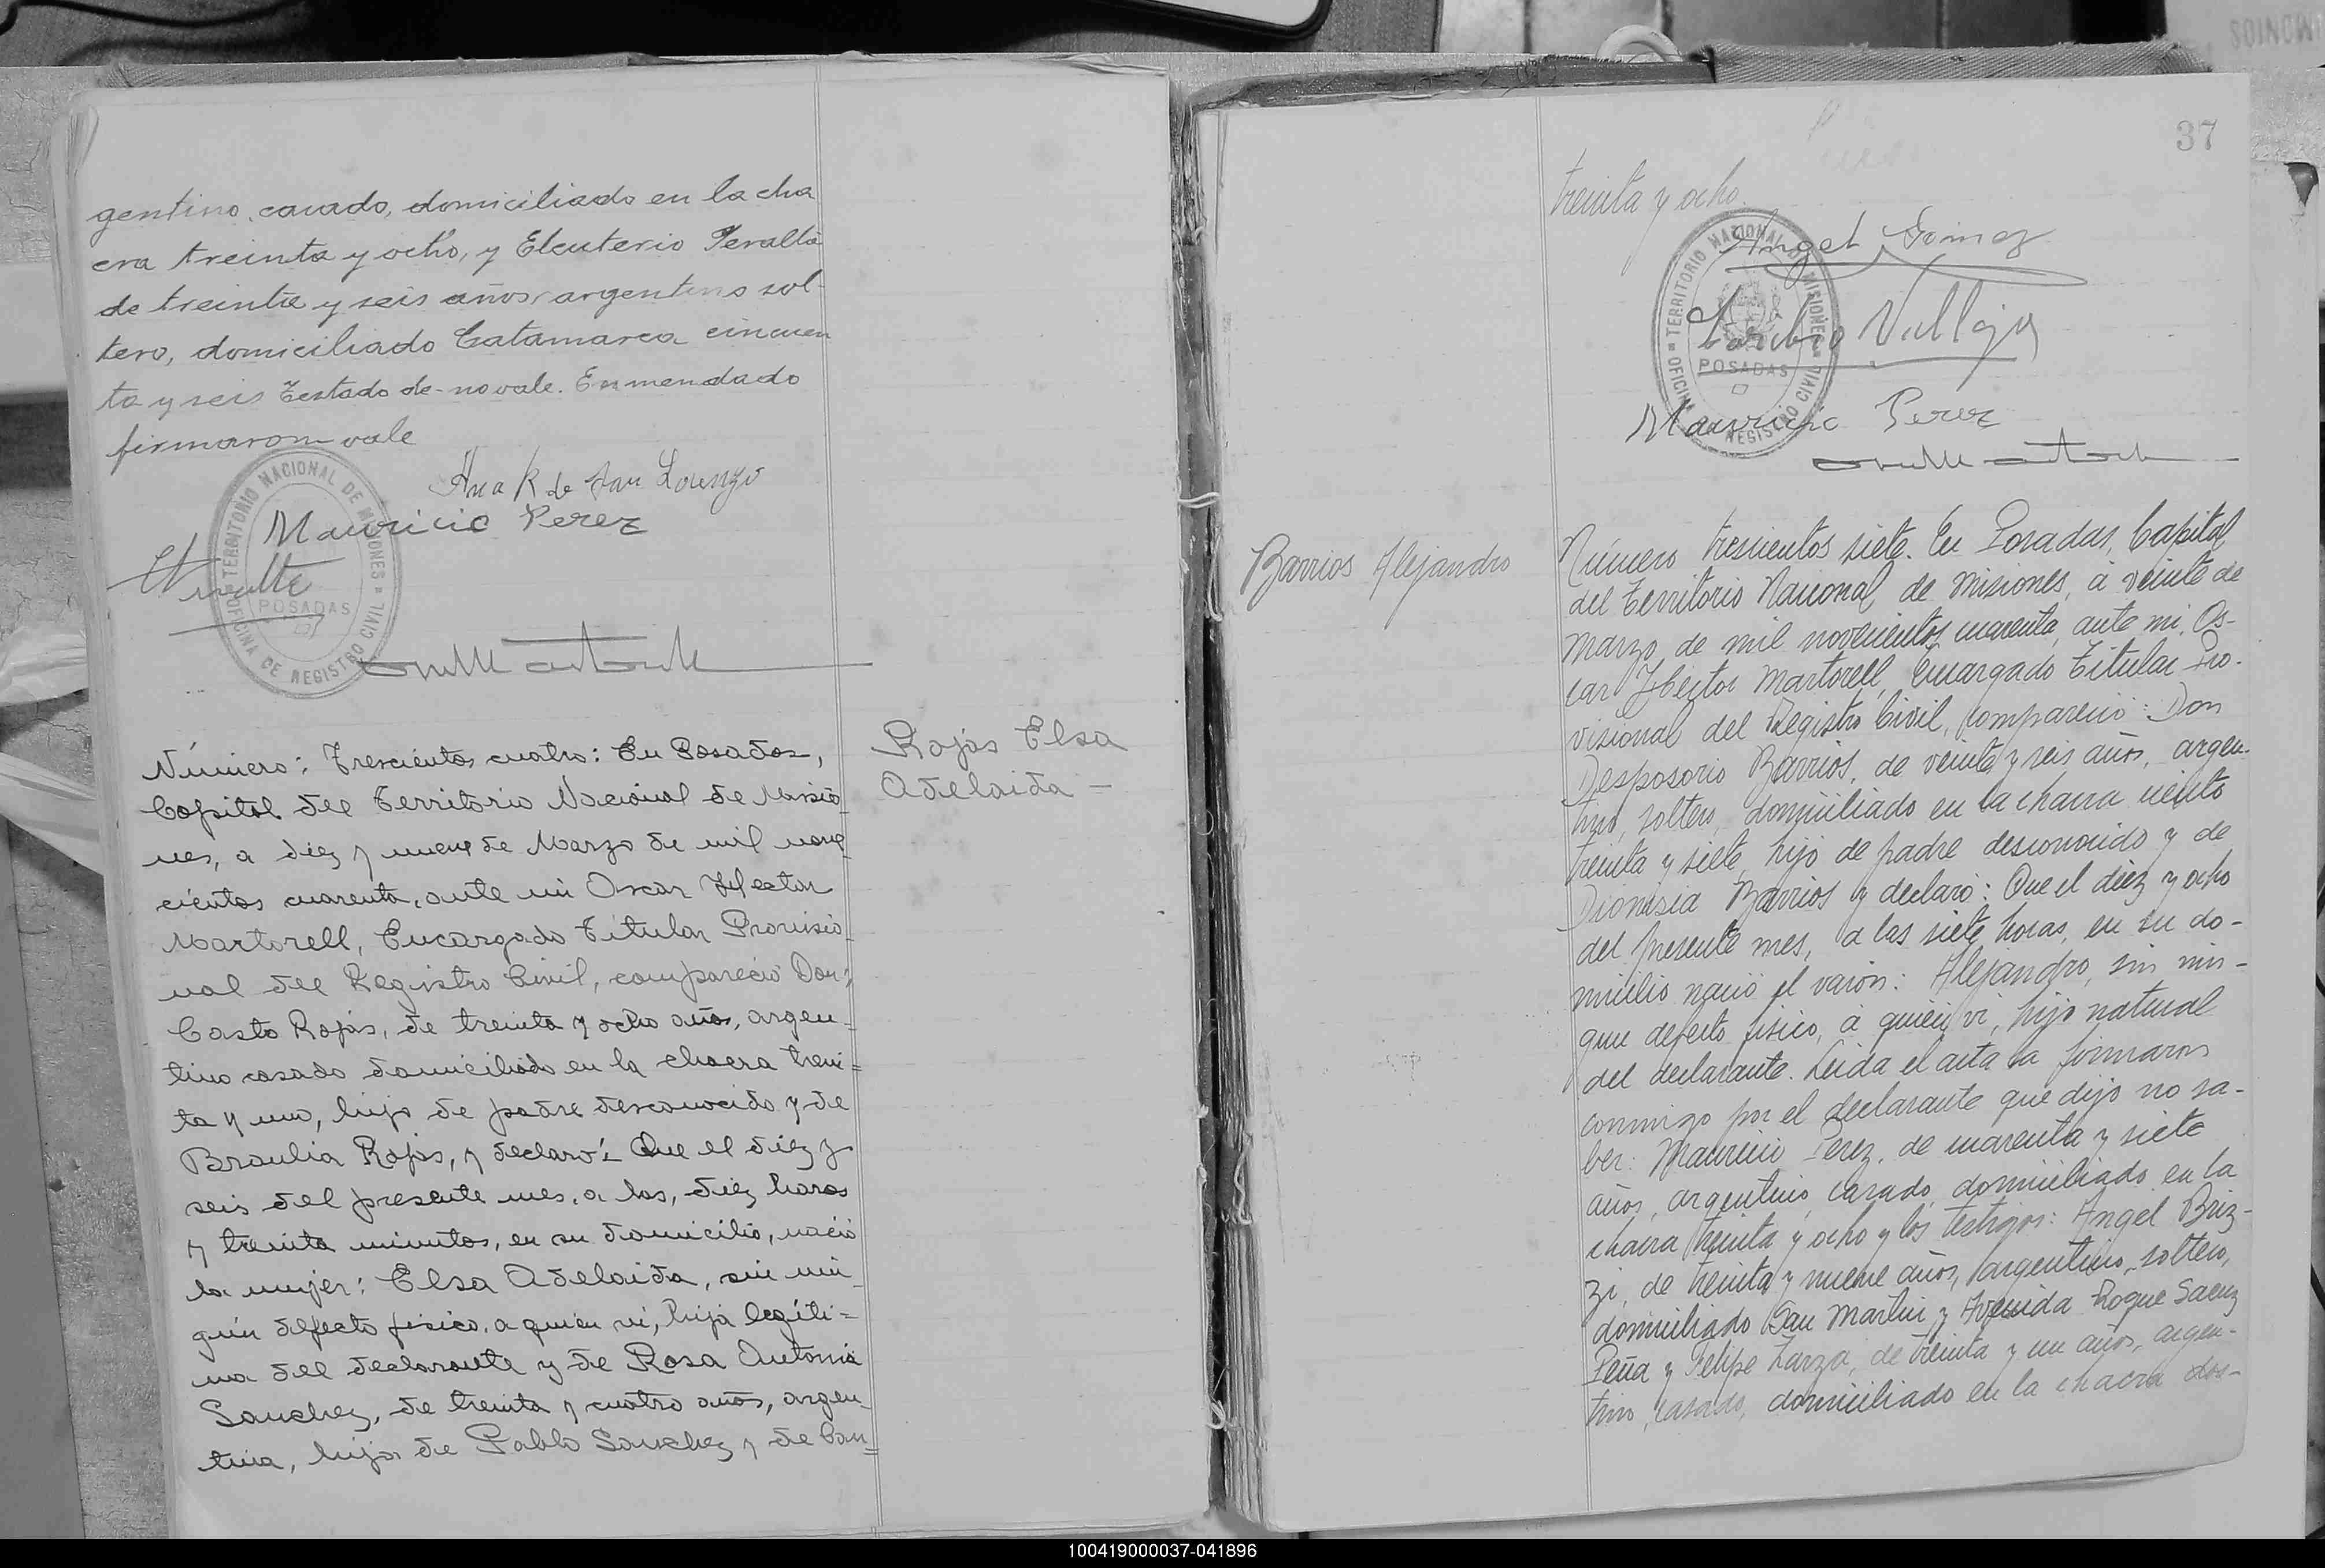 gentino, casado, domiciliado en la cha
cra treinta y ocho, y Eleuterio Peralta
de treinta y seis años, argentino sol-
tero, domiciliado Catamarca cincuen
ta y seis Testado de-no vale. Enmendado
firmaron-vale
Ana R de San Lorenzo
Mauricio Perez
TERRITORIO NACIONAL DE MISIONES
POSADAS
OFICINA DE REGISTRO CIVIL
Número: Trescientos cuatro: En Posadas,
Capital del Territorio Nacional de Misio-
nes, a diez y nueve de Marzo de mil nove-
cientos cuarenta, ante mi Oscar Hector
Martorell, Encargado Titular Provisio-
nal del Registro Civil, compareció Don;
Casto Rojas, de treinta y ocho años, argen-
tino casado domiciliado en la chacra trein=
ta y uno, hijo de padre desconocido y de
Braulia Rojas, y declaró: Que el diez y
seis del presente mes, a las, diez horas
y treinta minutos, en su domicilio, nació
la mujer: Elsa Adelaida, sin nin
gún defecto fisico, a quien vi, hija legiti=
ma del declarante y de Rosa Antonia
Sanchez, de treinta y cuatro años, argen-
tina, hija de Pablo Sanchez y de Can=
Rojas Elsa
Adelaida -
37
treinta y ocho.
Angel Gomez
Vallejos
TERRITORIO NACIONAL DE MISIONES
POSADAS
OFICINA DE REGISTRO CIVIL
Mauricio Perez
Barrios Alejandro
Número trescientos siete. En Posadas, Capital
del Territorio Nacional de Misiones, á veinte de
Marzo de mil novecientos cuarenta, ante mi, Os-
car Hector Martorell, Encargado Titular Pro-
visional del Registro Civil, compareció: Don
Desposorio Barrios, de veinte y seis años, argen-
tino, soltero, domiciliado en la chacra ciento
treinta y siete, hijo de padre desconocido y de
Dionisia Barrios y declaró: Que el diez y ocho
del presente mes, a las siete horas, en su do-
micilio nació el varón: Alejandro, sin nin-
gun defecto fisico, á quien vi, hijo natural
del declarante. Leida el acta la firmaron
conmigo por el declarante que dijo no sa-
ber: Mauricio Perez, de cuarenta y siete
años, argentino, casado, domiciliado en la
chacra treinta y ocho y los testigos: Angel Briz-
zi, de treinta y nueve años, argentino, soltero,
domiciliado San Martin y Avenida Roque Saenz
Peña y Felipe Zarza, de treinta y un años, argen-
tino, casado, domiciliado en la chacra dos-
100419000037-041896